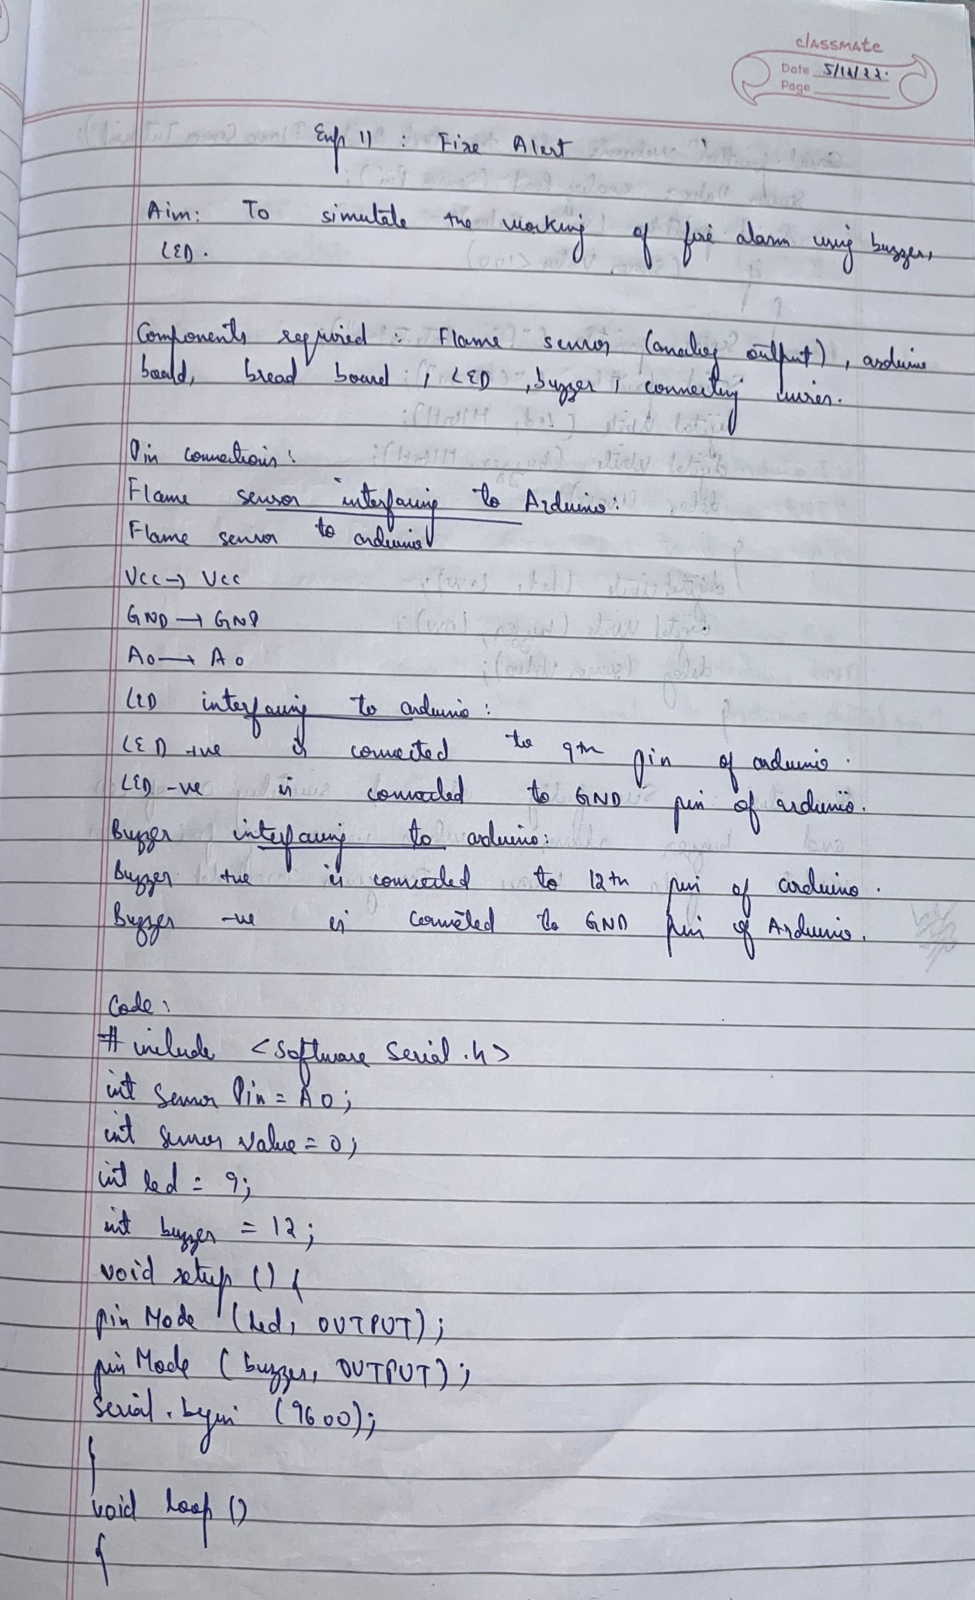 classmate
Date 5/12/22.
Page
Exp 11 : Fire Alert
Aim: To simulate the working of fire alarm using buzzer,
LED.
Components required : Flame sensor (analog output), arduino
board, bread board , LED , buzzer , connecting wires.
Pin connections:
Flame sensor interfacing to Arduino:
Flame sensor to arduino
Vcc → Vcc
GND → GND
A0 → A0
LED interfacing to arduino :
LED +ve is connected to 9th pin of arduino.
LED -ve is connected to GND pin of arduino.
Buzzer interfacing to arduino:
Buzzer +ve is connected to 12th pin of arduino.
Buzzer -ve is connected to GND pin of Arduino.
Code:
# include <Software Serial.h>
int Sensor Pin = A0;
int sensor value = 0;
int led = 9;
int buzzer = 12;
void setup () {
pin Mode (led, OUTPUT);
pin Mode (buzzer, OUTPUT);
Serial.begin (9600);
}
void loop ()
{